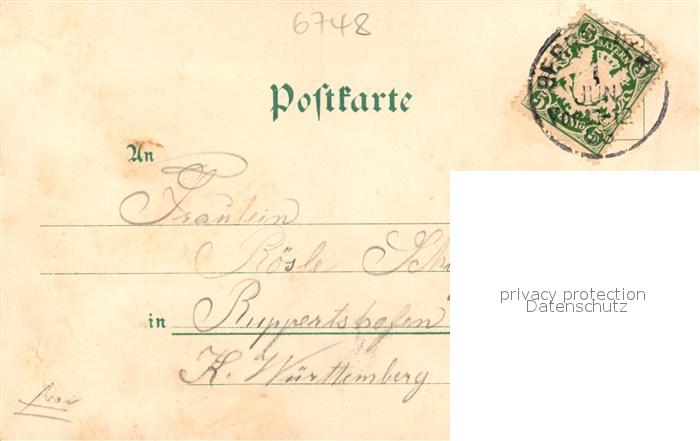 6748
5 BAYERN 5
1
JUN
Postkarte
An
Fräulein
Rösle Sch
in Ruppertshofen
K. Württemberg
frei
privacy protection
Datenschutz